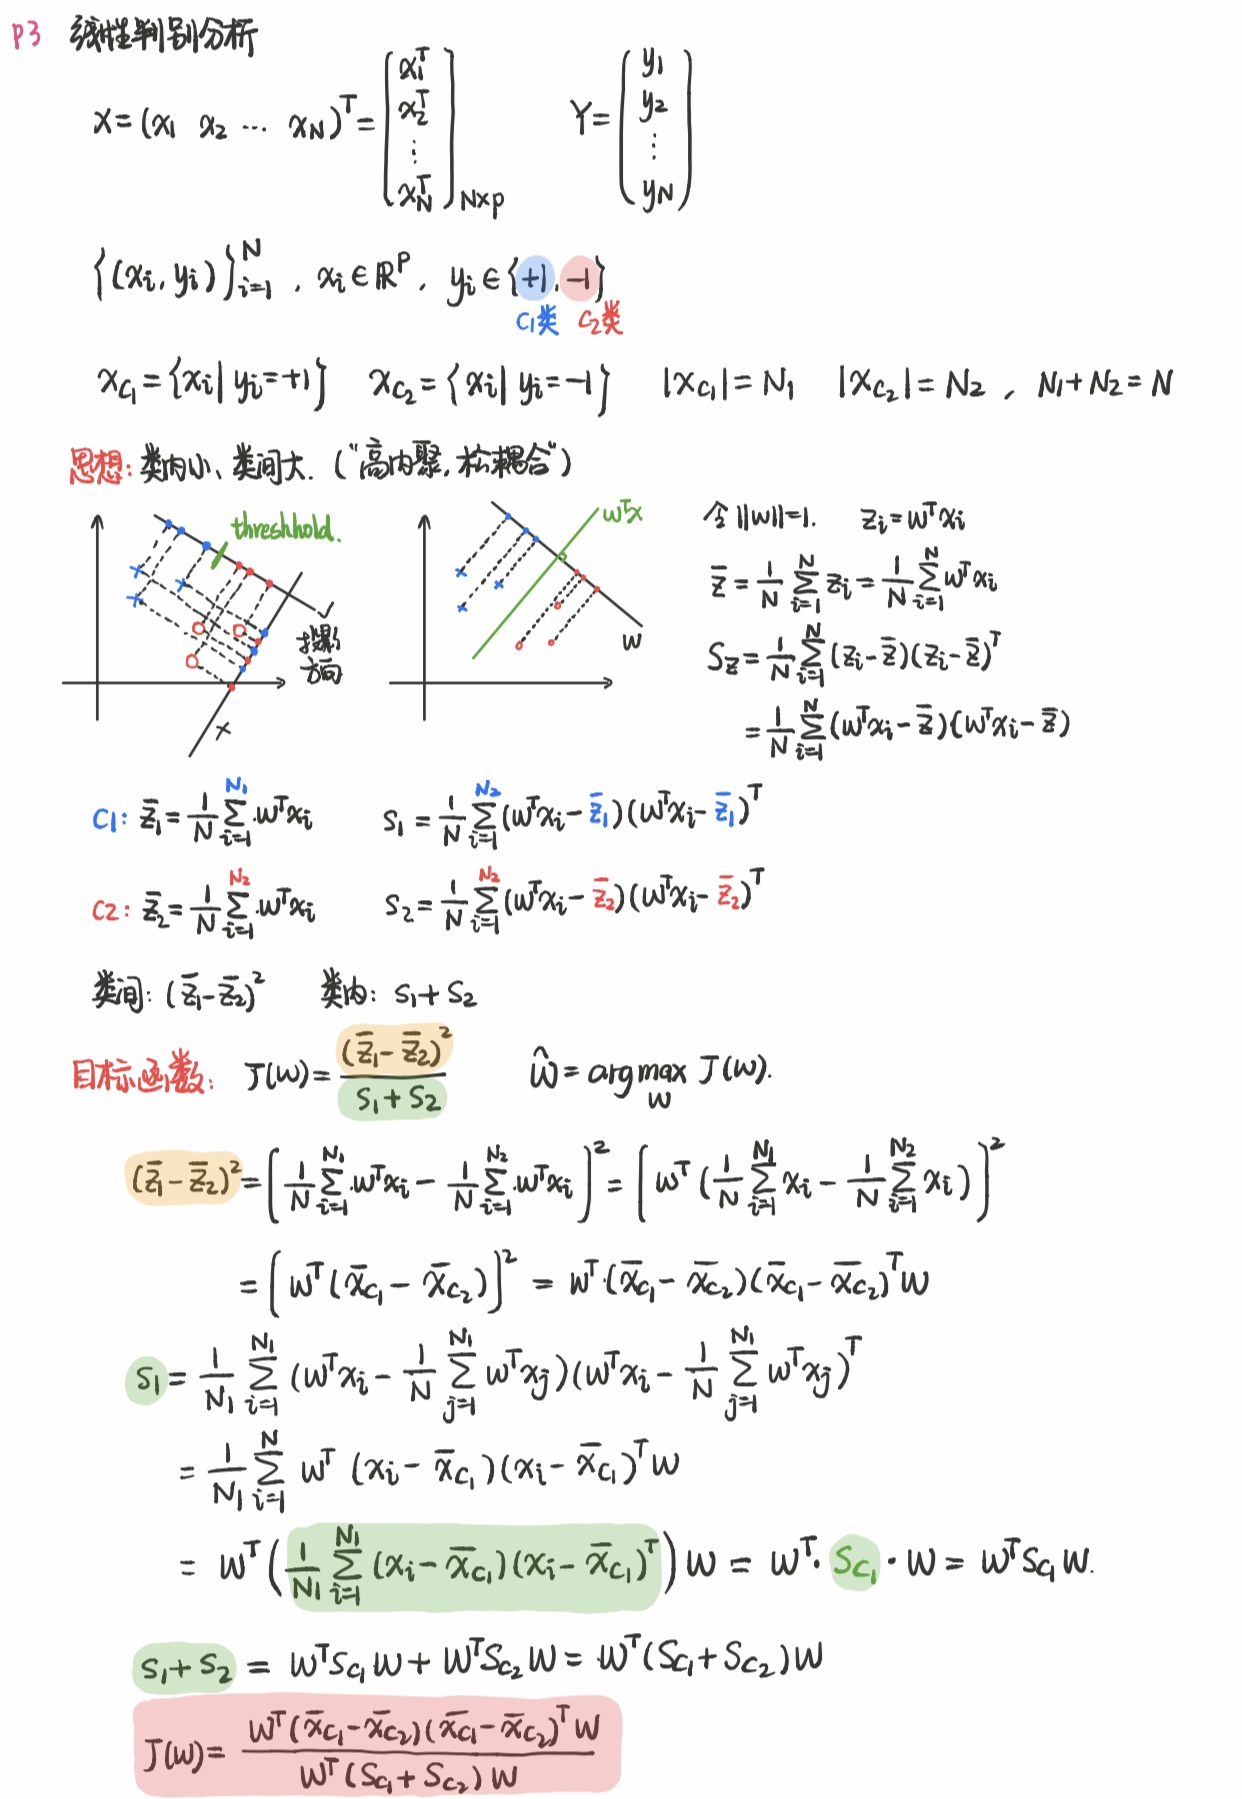 P3 线性判别分析
X=(x₁ x₂ ⋯ x_N)ᵀ=[x₁ᵀ x₂ᵀ ⋮ x_Nᵀ]_{N×p} Y=(y₁ y₂ ⋮ y_N)
{(xᵢ,yᵢ)}ᵢ₌₁ᴺ , xᵢ∈ℝᴾ, yᵢ∈{+1,-1}
C₁类 C₂类
x_{C₁}={xᵢ|yᵢ=+1} x_{C₂}={xᵢ|yᵢ=-1} |x_{C₁}|=N₁ |x_{C₂}|=N₂ , N₁+N₂=N
思想: 类内小、类间大.("高内聚,松耦合")
threshhold.
投影
方向
✓
×
wᵀx
w
令||w||=1. zᵢ=wᵀxᵢ
z̄=1/N ∑ᵢ₌₁ᴺ zᵢ=1/N ∑ᵢ₌₁ᴺ wᵀxᵢ
S_z=1/N ∑ᵢ₌₁ᴺ (zᵢ-z̄)(zᵢ-z̄)ᵀ
=1/N ∑ᵢ₌₁ᴺ (wᵀxᵢ-z̄)(wᵀxᵢ-z̄)
C1: z̄₁=1/N ∑ᵢ₌₁^{N₁} wᵀxᵢ S₁=1/N ∑ᵢ₌₁^{N₂} (wᵀxᵢ-z̄₁)(wᵀxᵢ-z̄₁)ᵀ
C2: z̄₂=1/N ∑ᵢ₌₁^{N₂} wᵀxᵢ S₂=1/N ∑ᵢ₌₁^{N₂} (wᵀxᵢ-z̄₂)(wᵀxᵢ-z̄₂)ᵀ
类间: (z̄₁-z̄₂)² 类内: S₁+S₂
目标函数: J(w)=(z̄₁-z̄₂)²/(S₁+S₂) ŵ=argmax_w J(w).
(z̄₁-z̄₂)²=[1/N ∑ᵢ₌₁^{N₁} wᵀxᵢ - 1/N ∑ᵢ₌₁^{N₂} wᵀxᵢ]²=[wᵀ(1/N ∑ᵢ₌₁^{N₁} xᵢ - 1/N ∑ᵢ₌₁^{N₂} xᵢ)]²
=[wᵀ(x̄_{C₁}-x̄_{C₂})]² = wᵀ·(x̄_{C₁}-x̄_{C₂})(x̄_{C₁}-x̄_{C₂})ᵀw
S₁=1/N₁ ∑ᵢ₌₁^{N₁} (wᵀxᵢ - 1/N ∑ⱼ₌₁^{N₁} wᵀxⱼ)(wᵀxᵢ - 1/N ∑ⱼ₌₁^{N₁} wᵀxⱼ)ᵀ
=1/N₁ ∑ᵢ₌₁ᴺ wᵀ(xᵢ-x̄_{C₁})(xᵢ-x̄_{C₁})ᵀw
= wᵀ(1/N₁ ∑ᵢ₌₁^{N₁} (xᵢ-x̄_{C₁})(xᵢ-x̄_{C₁})ᵀ)w = wᵀ·S_{C₁}·w = wᵀS_{C₁}w.
S₁+S₂ = wᵀS_{C₁}w+wᵀS_{C₂}w = wᵀ(S_{C₁}+S_{C₂})w
J(w)= wᵀ(x̄_{C₁}-x̄_{C₂})(x̄_{C₁}-x̄_{C₂})ᵀw / wᵀ(S_{C₁}+S_{C₂})w